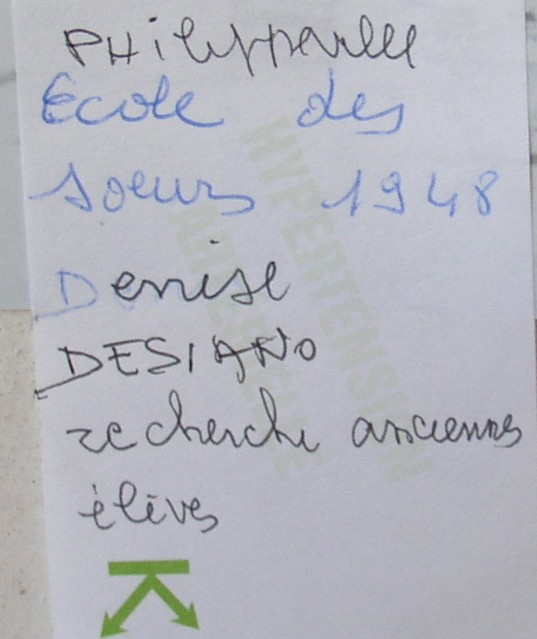 PHilippeville
Ecole des
soeurs 1948
Denise
DESIANO
recherche anciennes
élèves
HYPERTENSION
ARTERIELLE